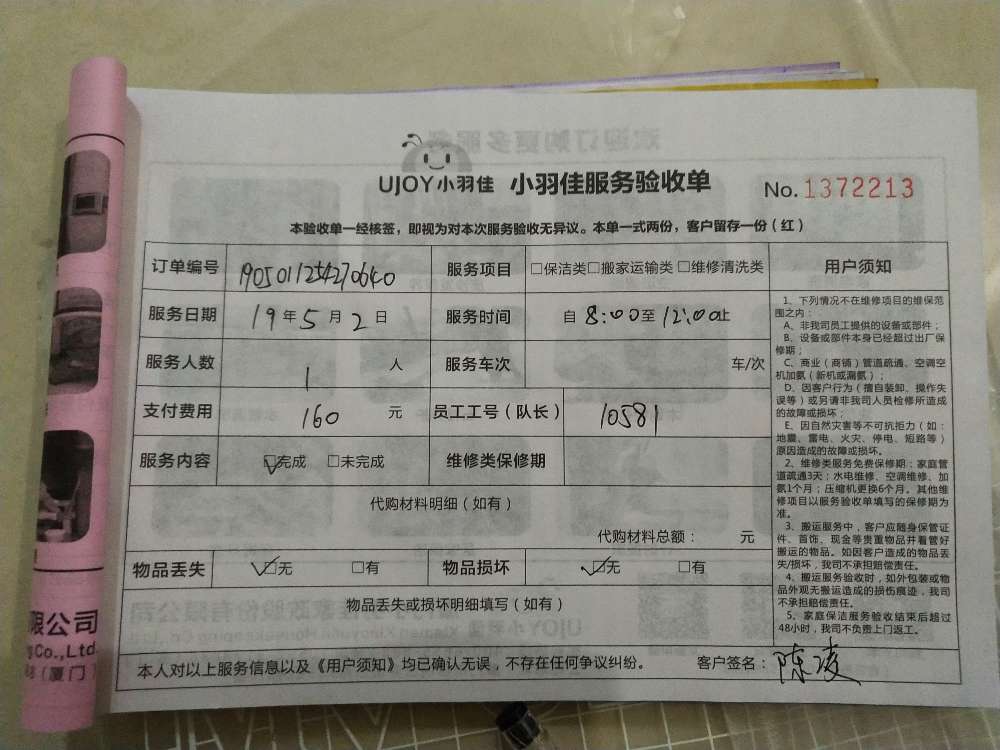 UJOY小羽佳 小羽佳服务验收单 No.1372213
本验收单一经核签，即视为对本次服务验收无异议。本单一式两份，客户留存一份（红）
订单编号 1905011254270640 服务项目 □保洁类□搬家运输类□维修清洗类 用户须知
服务日期 19年5月2日 服务时间 自 8:00至12:00止
服务人数 1 人 服务车次 车/次
支付费用 160 元 员工工号（队长） 10581
服务内容 ☑完成 □未完成 维修类保修期
代购材料明细（如有）
代购材料总额： 元
物品丢失 ☑无 □有 物品损坏 ☑无 □有
物品丢失或损坏明细填写（如有）
1、下列情况不在维修项目的维保范
围之内：
A、非我司员工提供的设备或部件；
B、设备或部件本身已经超过出厂保
修期；
C、商业（商铺）管道疏通、空调空
机加氨（新机或漏氨）；
D、因客户行为（擅自装卸、操作失
误等）或另请非我司人员检修所造成
的故障或损坏；
E、因自然灾害等不可抗拒力（如：
地震、雷电、火灾、停电、短路等）
原因造成的故障或损坏。
2、维修类服务免费保修期：家庭管
道疏通3天；水电维修、空调维修、加
氨1个月；压缩机更换6个月。其他维
修项目以服务验收单填写的保修期为
准。
3、搬运服务中，客户应随身保管证
件、首饰、现金等贵重物品并看管好
搬运的物品。如因客户造成的物品丢
失/损坏，我司不承担赔偿责任。
4、搬运服务验收时，如外包装或物
品外观无搬运造成的损伤痕迹，我司
不承担赔偿责任。
5、家庭保洁服务验收结束后超过
48小时，我司不负责上门返工。
本人对以上服务信息以及《用户须知》均已确认无误，不存在任何争议纠纷。 客户签名：陈凌
限公司
Co.,Ltd.
（厦门）